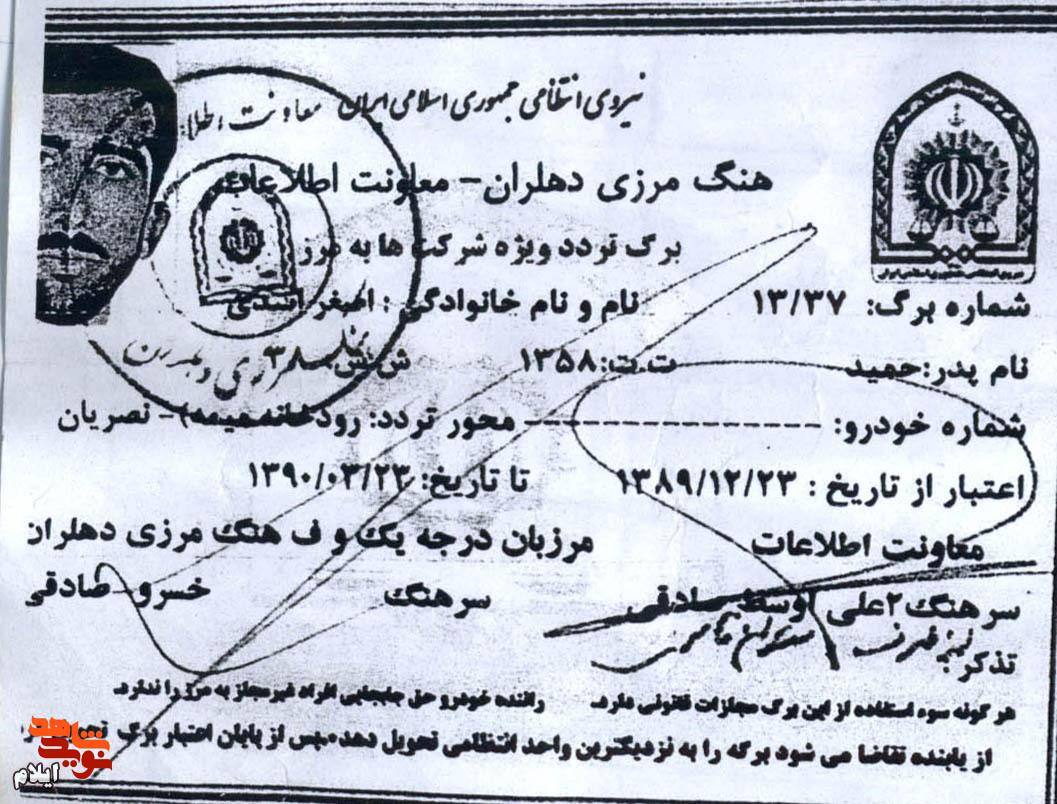 نیروی انتظامی جمهوری اسلامی ایران
معاونت اطلا
هنگ مرزی دهلران - معاونت اطلاعات
برگ تردد ویژه شرکت ها به مرز
شماره برگ: ۱۳/۳۷ نام و نام خانوادگی : اصغر اسدی
نام پدر:حمید ت.ت:۱۳۵۸ ش.ش ۳۸
شماره خودرو: ---------------------- محور تردد: رودخانه میمه) - نصریان
اعتبار از تاریخ : ۱۳۸۹/۱۲/۲۳ تا تاریخ: ۱۳۹۰/۰۳/۲۳
معاونت اطلاعات مرزبان درجه یک و ف هنگ مرزی دهلران
سرهنگ۲علی اوسط صادقی سرهنگ خسرو صادقی
تذکر:
هر گونه سوء استفاده از این برگ مجازات قانونی دارد. راننده خودرو حق جابجایی افراد غیرمجاز به مرز را ندارد.
از یابنده تقاضا می شود برگه را به نزدیکترین واحد انتظامی تحویل دهد.پس از پایان اعتبار برگ
نوید شاهد
ایلام